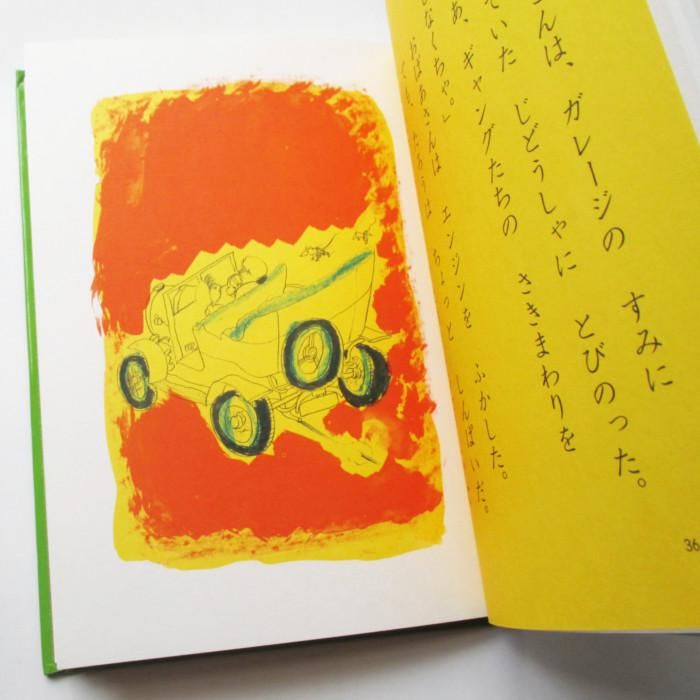 さんは、ガレージの すみに
ていた じどうしゃに とびのった。
あ、ギャングたちの さきまわりを
しなくちゃ。」
おばあさんは エンジンを ふかした。
ちょっと しんぱいだ。
36